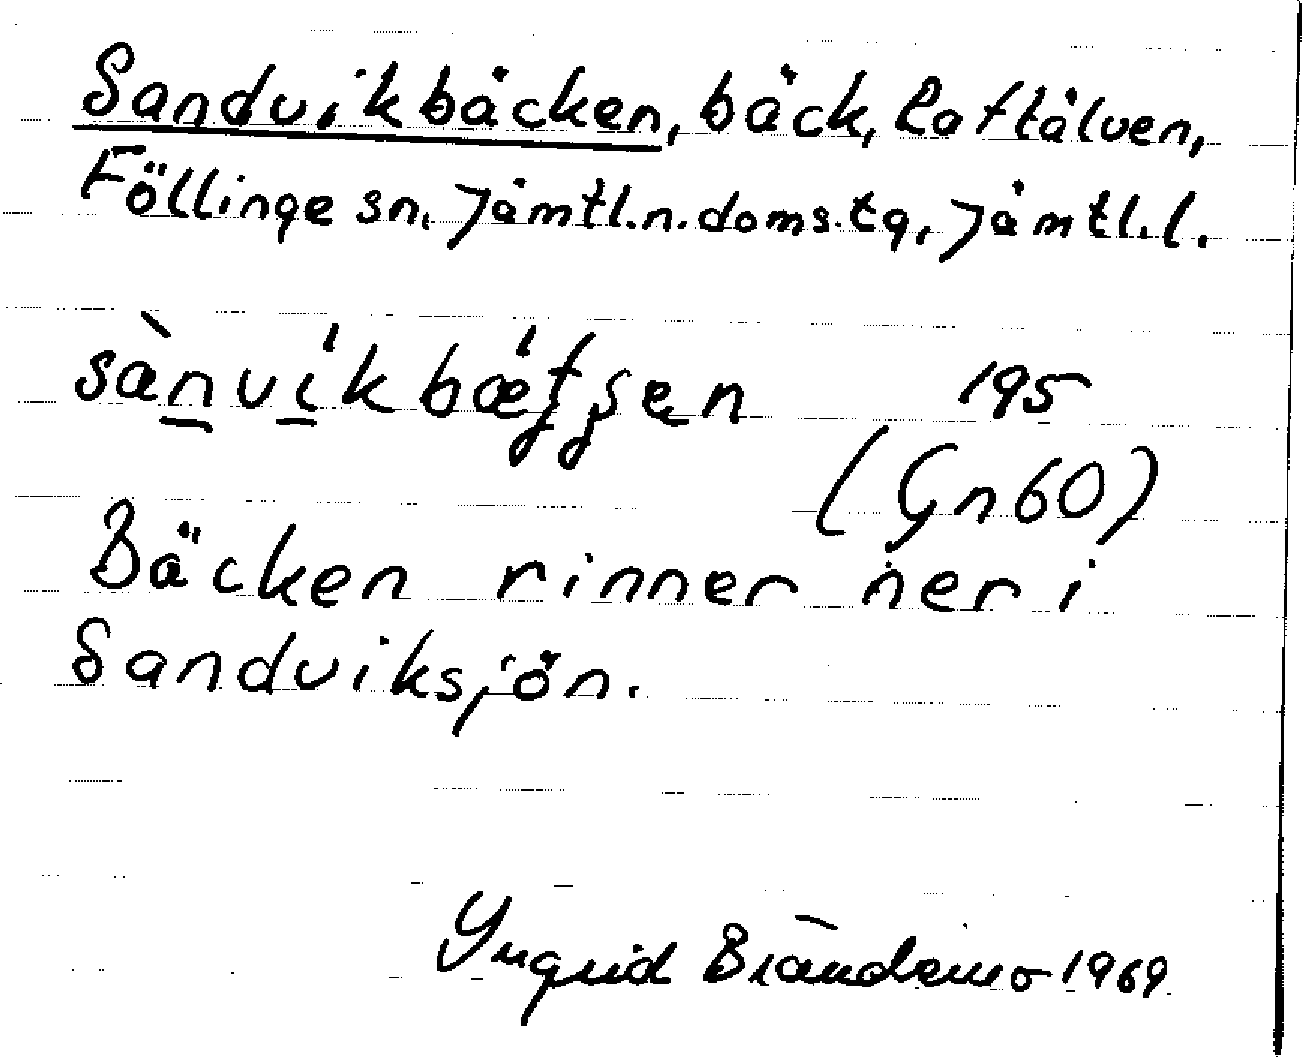 Sandvikbäcken, bäck, Laftälven,
Föllinge sn, Jämtl.n.doms.tg, Jämtl.l.
sànvíkbǽʈʂen 195
(Gn60)
Bäcken rinner ner i
Sandviksjön.
Yngrid Brändemo 1969